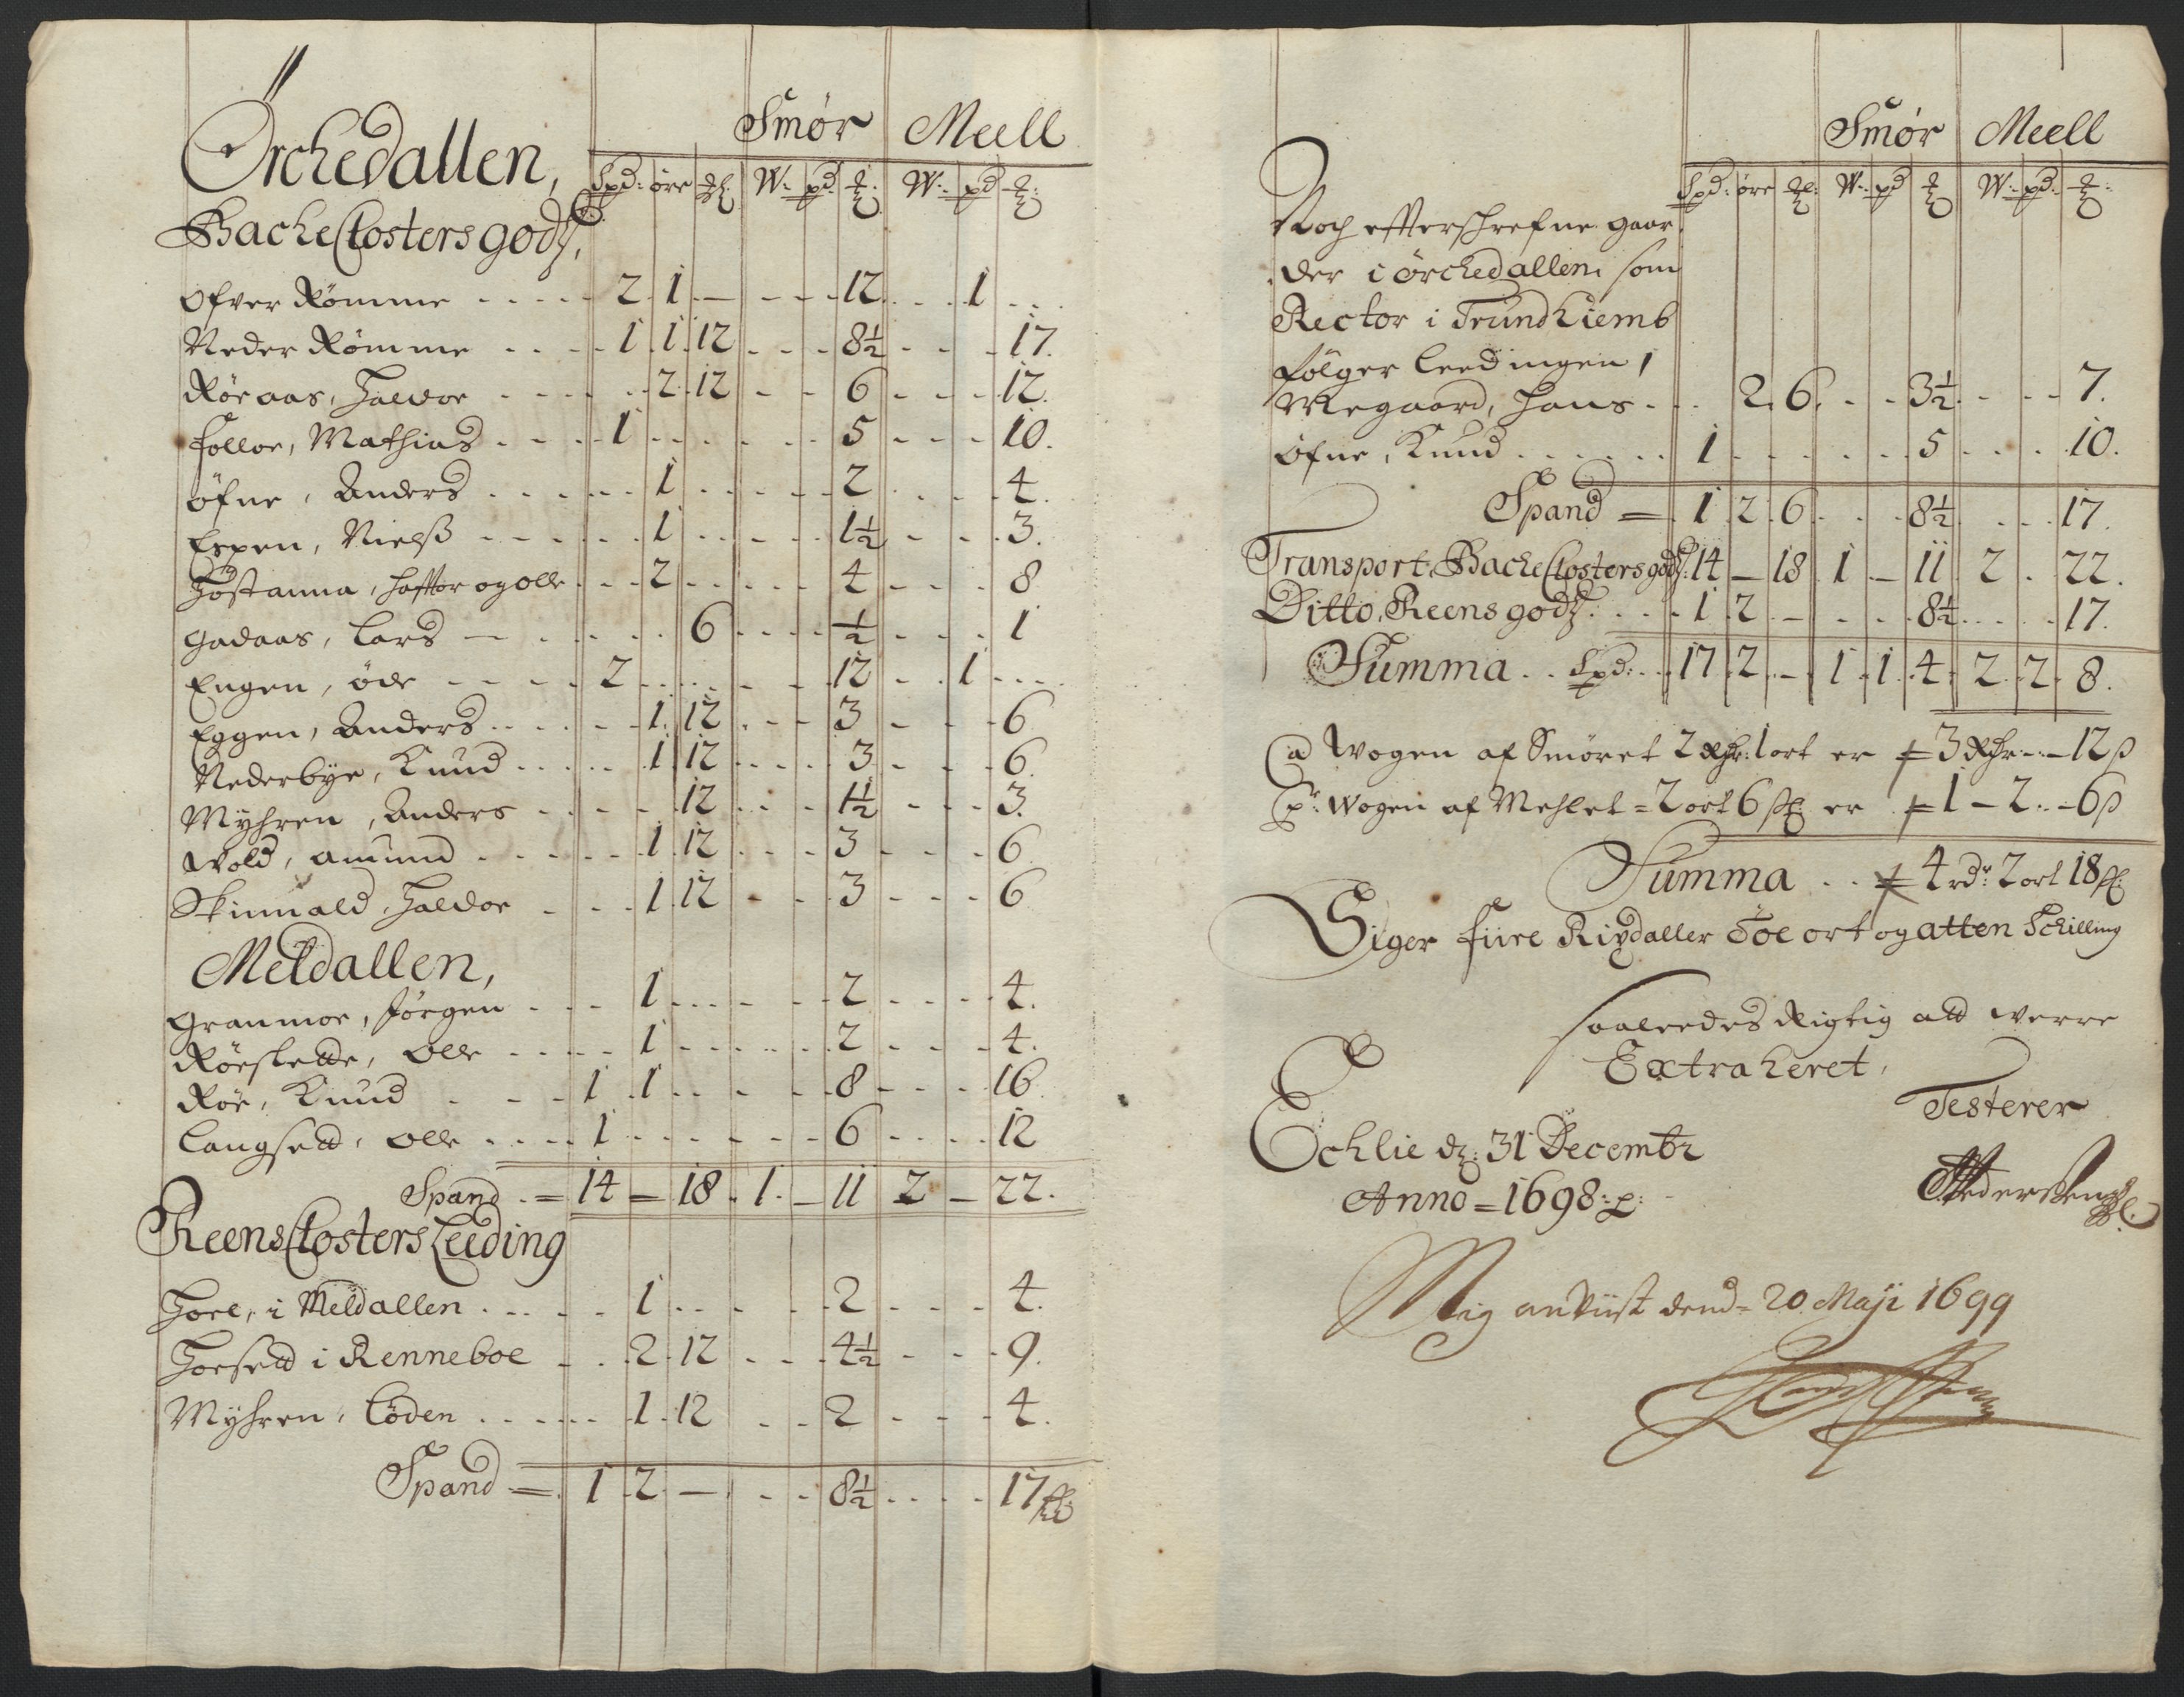 Smør Meell
Orchedallen, Spd: øre W: pd: W: pd
Bache Closters godtz,
Ofver Rømme 2 1 — 12 1
Neder Rømme 1 1 12 8½ 17.
Røe aas, Haldor 2 12 6 12.
Folloe, Mathias 1 5 10.
Øfne, Anders 1 2 4.
Espen, Nielß 1 1½ 3.
Høstanna, haftor og olle 2 4 8
Gadaas, Lars 6 ½ 1
Engen, øde 2 12 1
Eggen, Anders 1 12 3 6
Nederbye, Knud 1 12 3 6
Myhren, Anders 12 1½ 3.
Wold, Amund 1 12 3 6
Skinnald, Haldor 1 12 3 6
Meldallen,
Granmoe, Jørgen 1 2 4.
Røesette, Olle 1 2 4.
Røe, Knud 1 1 8 16
Langsett, Olle 1 6 12
Spand = 14 — 18 1 — 11 2 — 22.
Reens Closters Leeding
Hoel, i Meldallen 1 2 4.
Hoesett i Renneboe 2 12 4½ 9.
Myhren, Cöden 1 12 2 4.
Spand = 1 2 — 8½ 17
Smør Meell
Spd: øre W: pd W: pd:
Noch effterschrefne gaar
der i Ørchedallen som
Rector i Trundhiemb
følger leedingen,
Megaard, Hans 2 6 3½ 7.
Øfne, Knud 1 5 10.
Spand = 1 2 6 8½ 17.
Transport, Bache Closters godtz: 14 — 18 1 — 11 2 22.
Ditto, Reens godtz 1 2 — 8½ 17.
Summa Spd: 17 2 — 1 1 4 2 2 8.
a Wogen af Smøret 2 Rdr: 1 ort er 3 Rdr — 12 ß
pr: Wogen af Mehlet = 2 ort 6 ß er 1 — 2 — 6 ß
Summa 4 rdr: 2 ort 18 ß
Siger fiire Rixdaller Toe ort og atten Schilling
saaledes Rigtig att werre
Extraheret,
Testerer
Echlie d: 31 Decembr
Anno = 1698:
Mig anviist dend = 20 Maji 1699